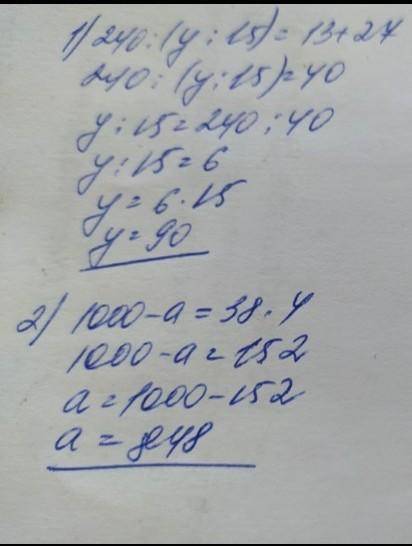 1) 240 : (y : 15) = 13 + 27
240 : (y : 15) = 40
y : 15 = 240 : 40
y : 15 = 6
y = 6 · 15
y = 90
2) 1000 - a = 38 · 4
1000 - a = 152
a = 1000 - 152
a = 848